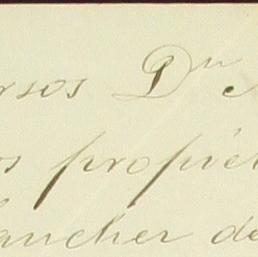 rsos Dn
os propiet
lancher de